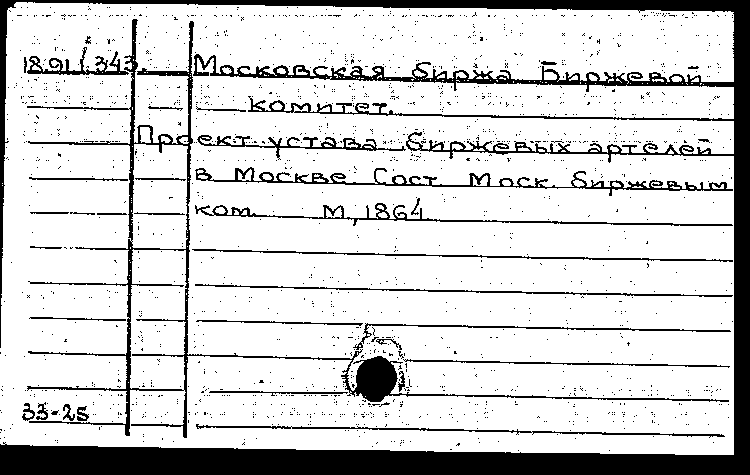 18.91/343. Московская биржа Биржевой
комитет.
Проект устава биржевых артелей
в Москве. Сост. Моск. биржевым
ком. М., 1864
33-25